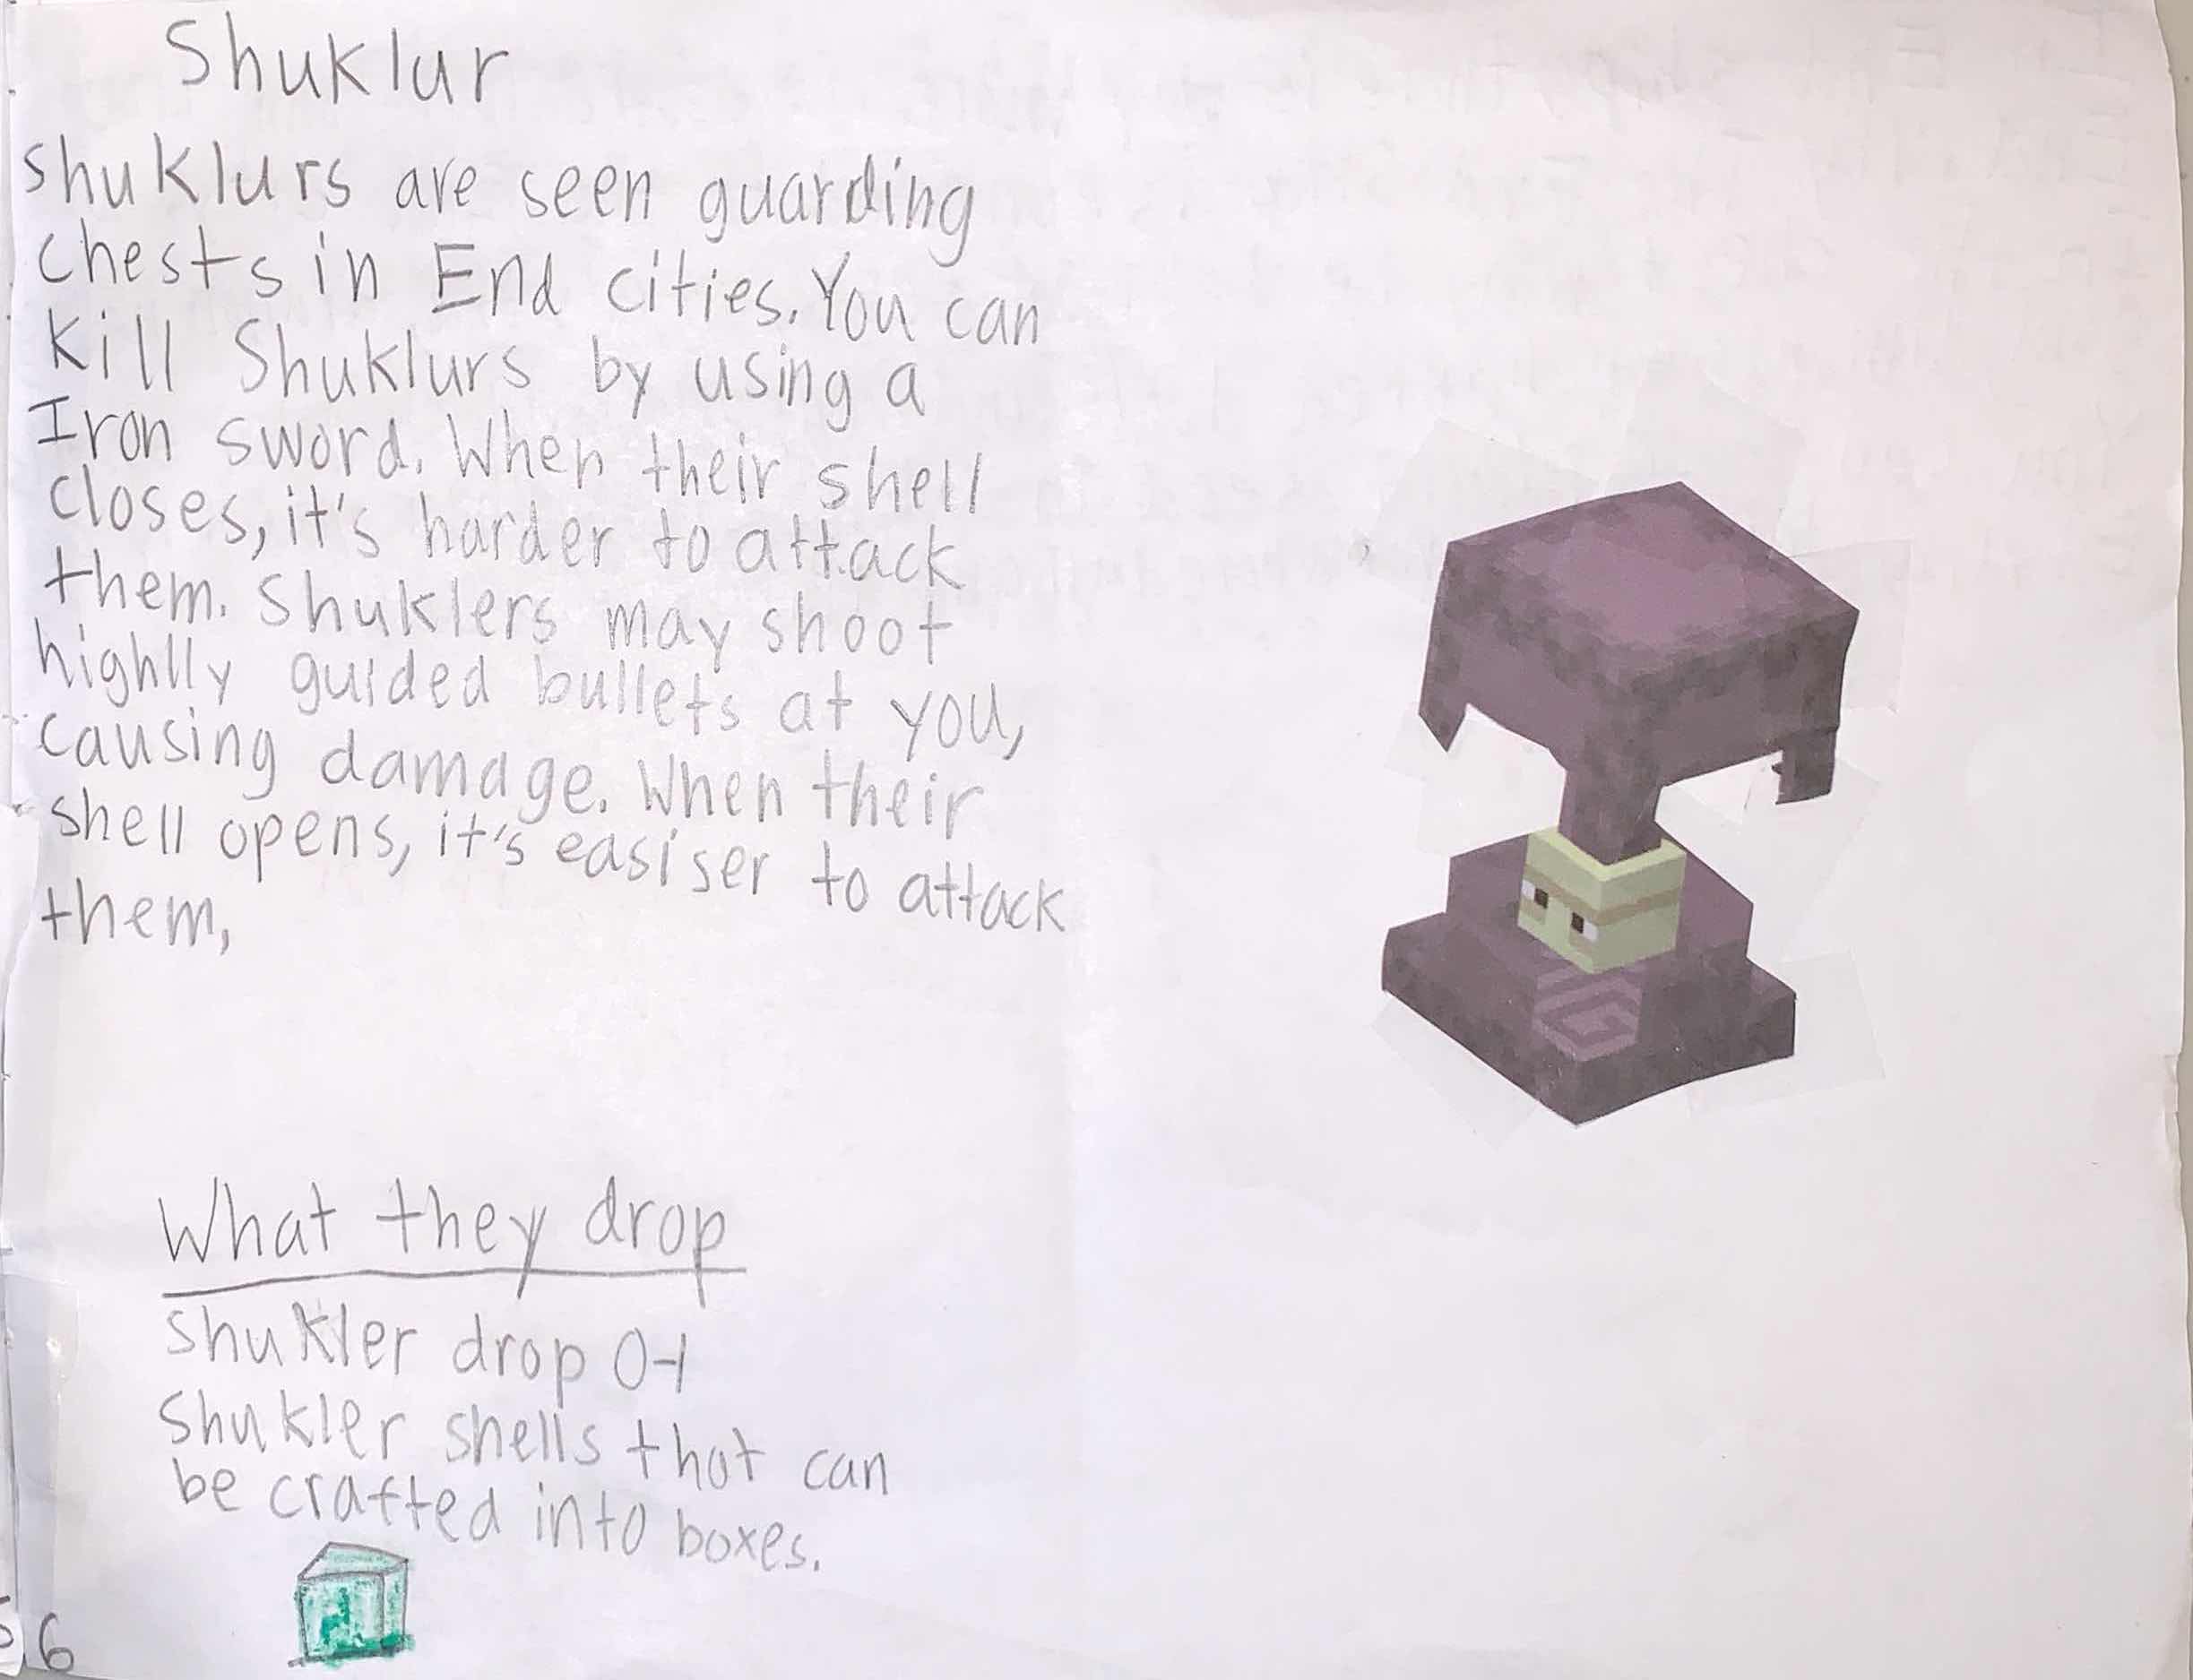 Shuklur
shuklurs are seen guarding
chests in End cities. You can
kill Shuklurs by using a
Iron sword. When their shell
closes, it's harder to attack
them. Shuklers may shoot
highlly guided bullets at you,
causing damage. When their
shell opens, it's easiser to attack
them,
What they drop
Shukler drop 0-1
Shukler shells that can
be crafted into boxes.
6